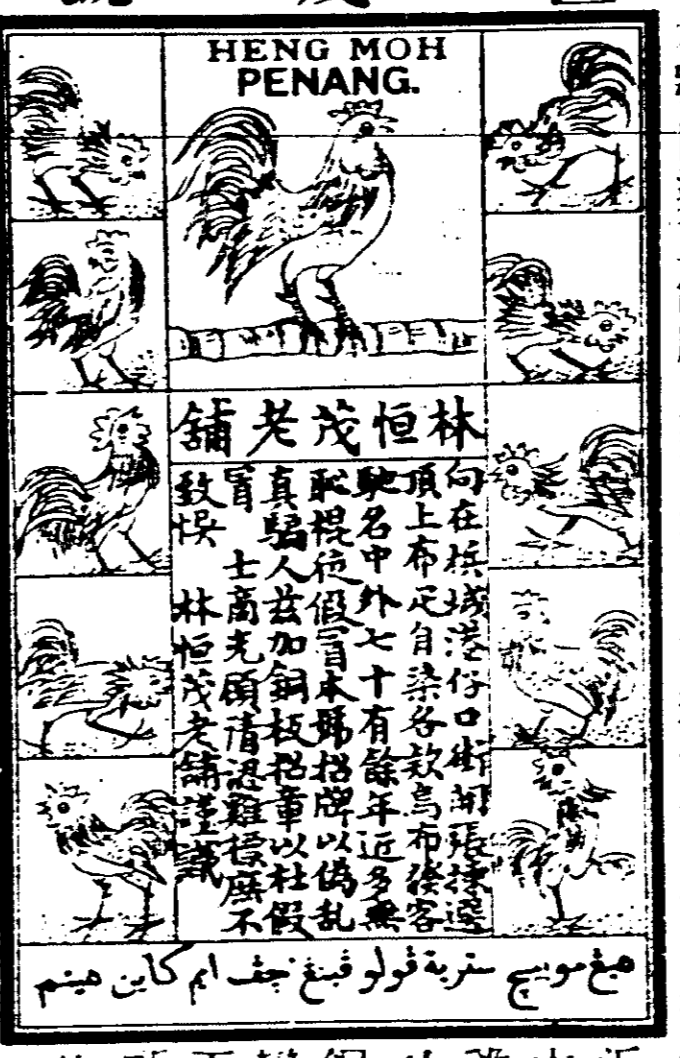 HENG MOH
PENANG.
林恒茂老舖
向在檳城港仔口街開張揀選
頂上布疋自染各欵烏布發客
馳名中外七十有餘年近多無
恥棍徒假冒本號招牌以偽乱
真騙人茲加銅板招章以杜假
冒 士商光顧請認雞標庶不
致悞 林恒茂老舖謹識
هيڠ موبيچ سترية ڤولو ڤينڠ چڤ ايم كاين هيتم